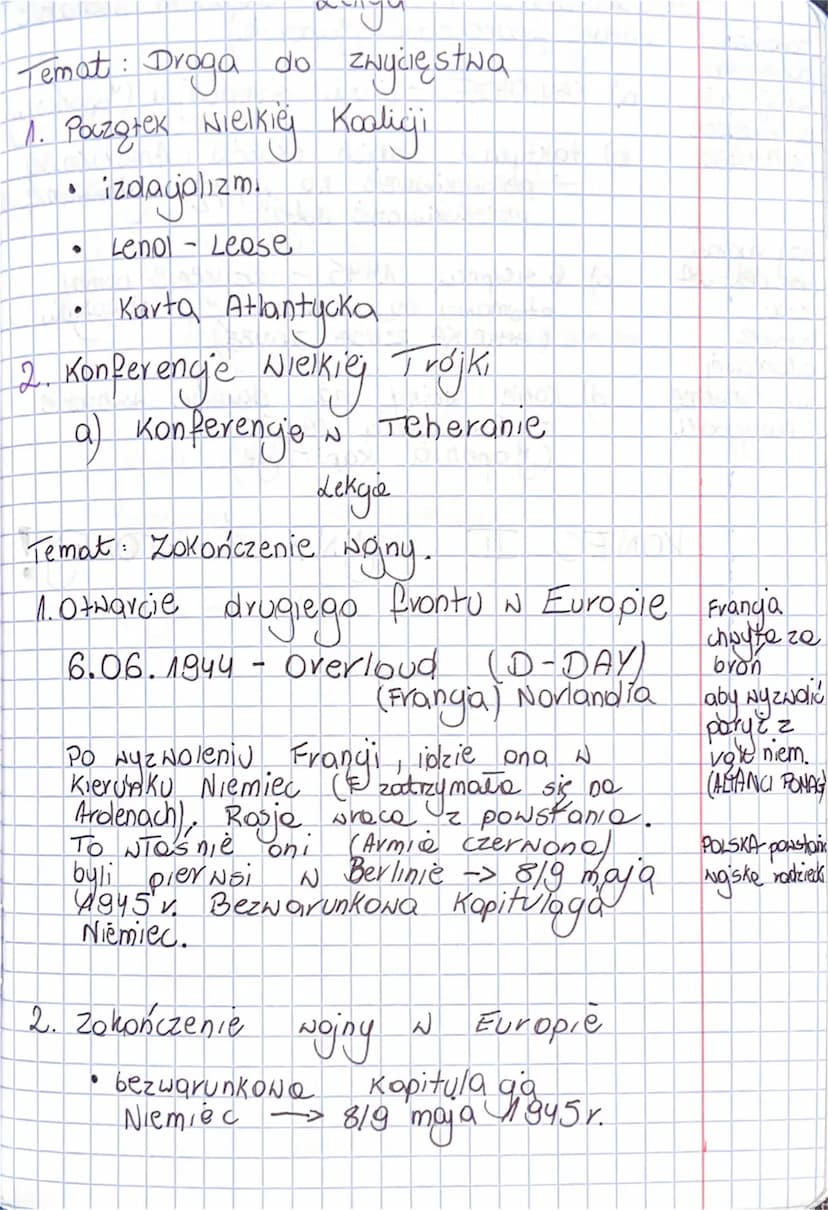 Temat: Droga do zwycięstwa
1. Początek Wielkiej Koalicji
• izolacjolizm.
• Lend - Lease
• Karta Atlantycka
2. Konferencje Wielkiej Trójki
a) Konferencje w Teheranie
Lekcja
Temat: Zakończenie wojny.
1. Otwarcie drugiego frontu w Europie
6.06.1944 - Overloud (D-DAY)
(Francja) Norlandia
Po wyzwoleniu Francji, idzie ona w
Kierunku Niemiec ( zatrzymała się na
Ardenach). Rosja wraca z powstania.
To właśnie oni (Armia czerwona)
byli pierwsi w Berlinie -> 8/9 maja
1945 r. Bezwarunkowa Kapitulacja
Niemiec.
Francja
chwyta za
broń
aby wyzwolić
paryż z
niem.
(ALIANCI
POLSKA-powstan
wojska radzieck
2. Zakończenie wojny w Europie
• bezwarunkowa Kapitulacja
Niemiec -> 8/9 maja 1945r.